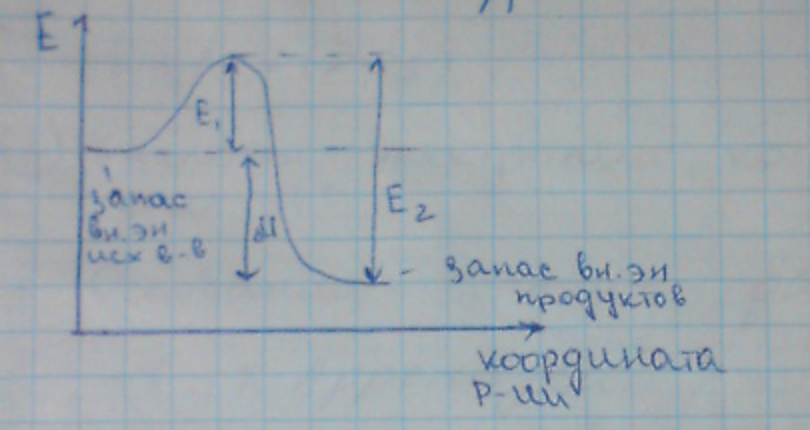 E
E₁
запас
вн.эн
исх в-в
E₂
- запас вн.эн
продуктов
координата
р-ии